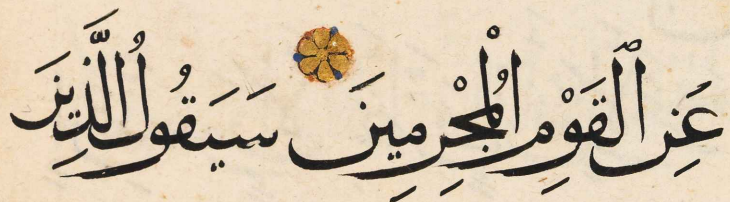 عَنِ ٱلْقَوْمِ الْمُجْرِمِينَ سَيَقُولُ الَّذِينَ